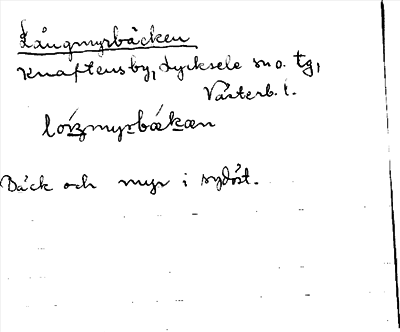 Långmyrbäcken
Knaftens by, Lycksele sn o. tg,
Västerb. l.
Bäck och myr i sydöst.